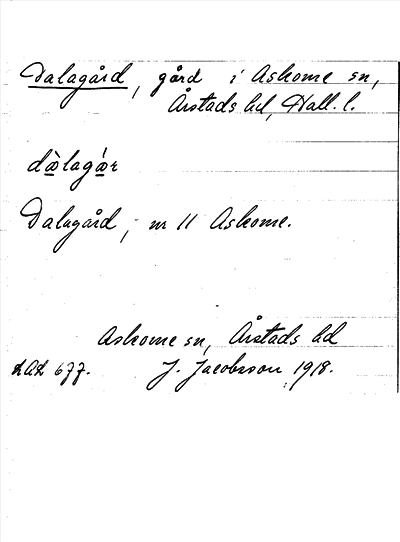 Dalagård, gård i Askome sn,
Årstads hd, Hall. l.
dàlagár
Dalagård, nr 11 Askome.
Askome sn, Årstads hd
LAL 677. J. Jacobsson 1918.